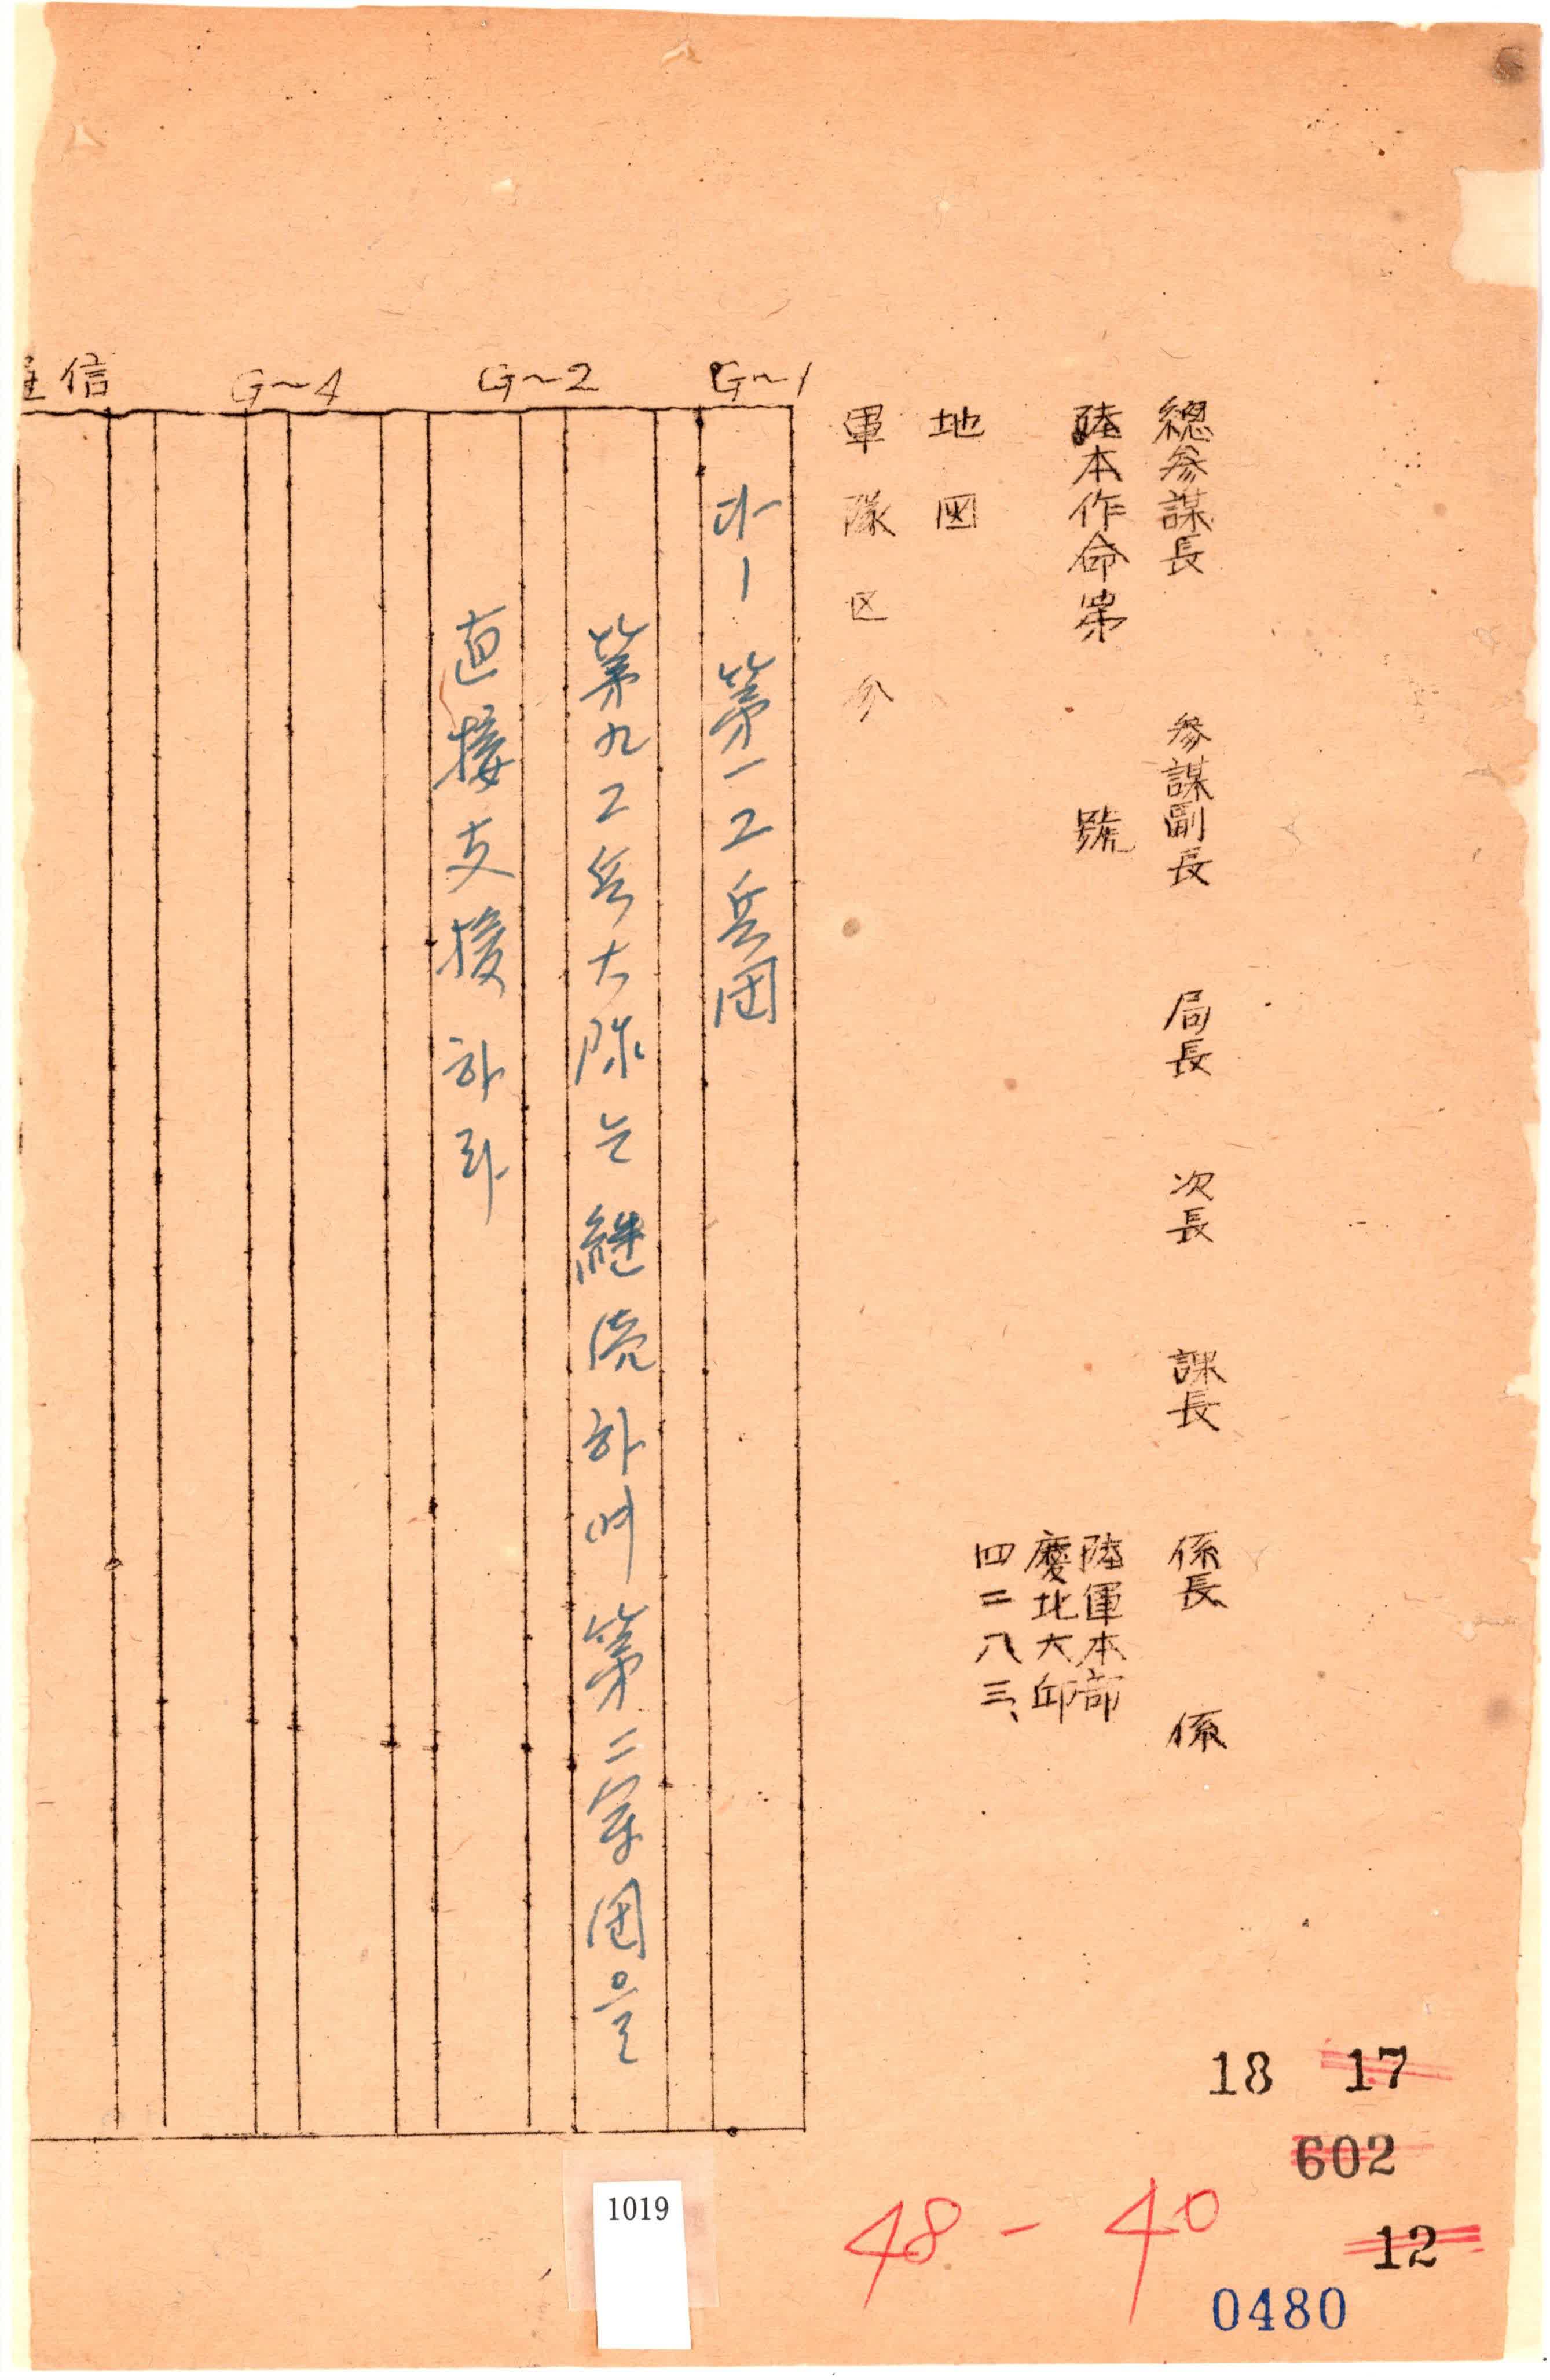 總參謀長 參謀副長 局長 次長 課長 係長 係
陸本作命第 號
陸軍本部
慶北大邱
四二八三、
地図
軍隊区分
G~1
G~2
G~4
信
다-1 第一工兵団
第九工兵大隊는 継続하여 第二軍団을
直接支援하라
18 17
602
12
48-40
0480
1019